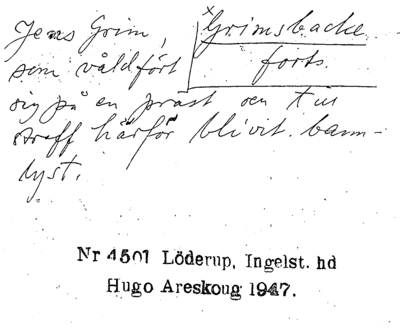 Jens Grim,
xGrimsbacke
forts.
som våldfört
sig på en präst och till
straff härför blivit bann-
lyst.
Nr 4501 Löderup, Ingelst. hd
Hugo Areskoug 1947.